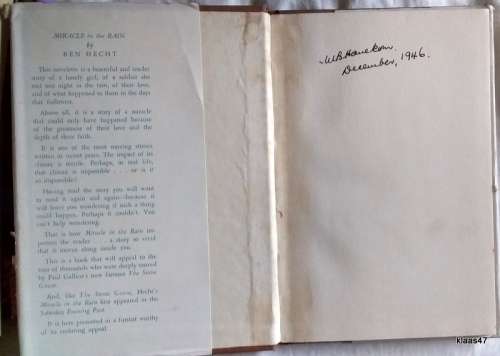 MIRACLE in the RAIN
by
BEN HECHT
This novelette is a beautiful and tender
story of a lonely girl, of a soldier she
met one night in the rain, of their love,
and of what happened to them in the days
that followed.
Above all, it is a story of a miracle
that could only have happened because
of the greatness of their love and the
depth of their faith.
It is one of the most moving stories
written in recent years. The impact of its
climax is terrific. Perhaps, in real life,
that climax is impossible . . . or is it
so impossible?
Having read the story you will want
to read it again and again—because it
will leave you wondering if such a thing
could happen. Perhaps it couldn't. You
can't help wondering.
That is how Miracle in the Rain
the reader . . . a story so vivid
that it moves along inside you.
This is a book that will appeal to the
tens of thousands who were deeply moved
by Paul Gallico's now famous The Snow
Goose.
And, like The Snow Goose, Hecht's
Miracle in the Rain first appeared in the
Saturday Evening Post.
It is here presented in a format worthy
of its enduring appeal.
December, 1946.
klaas47